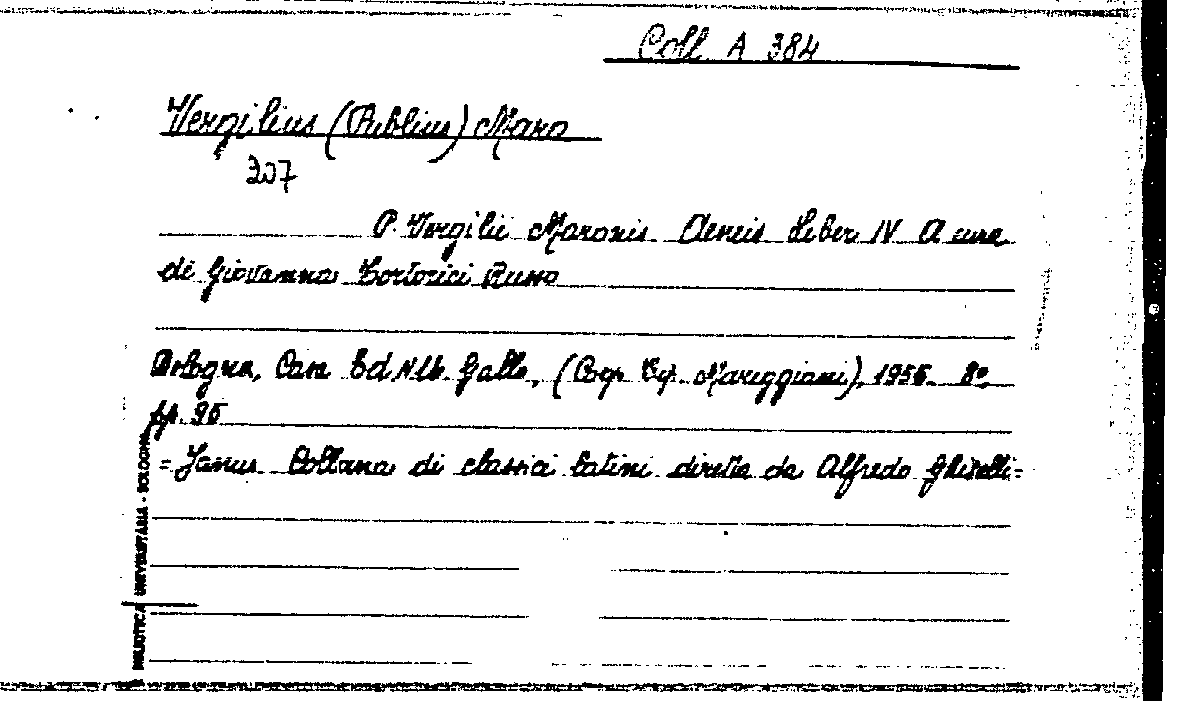 Coll A 384
Vergilius (Publius) Maro
307
P. Vergili Maronis Aeneis Liber IV A cura
di Giovanna Tortorici Russo
Bologna, Casa Ed N.U. Gallo, (Coop. Tip. Mareggiani), 1956. 8°,
pp. 96
= Janus Collana di classici latini diretta da Alfredo Ghiselli =
BIBLIOTECA UNIVERSITARIA - BOLOGNA